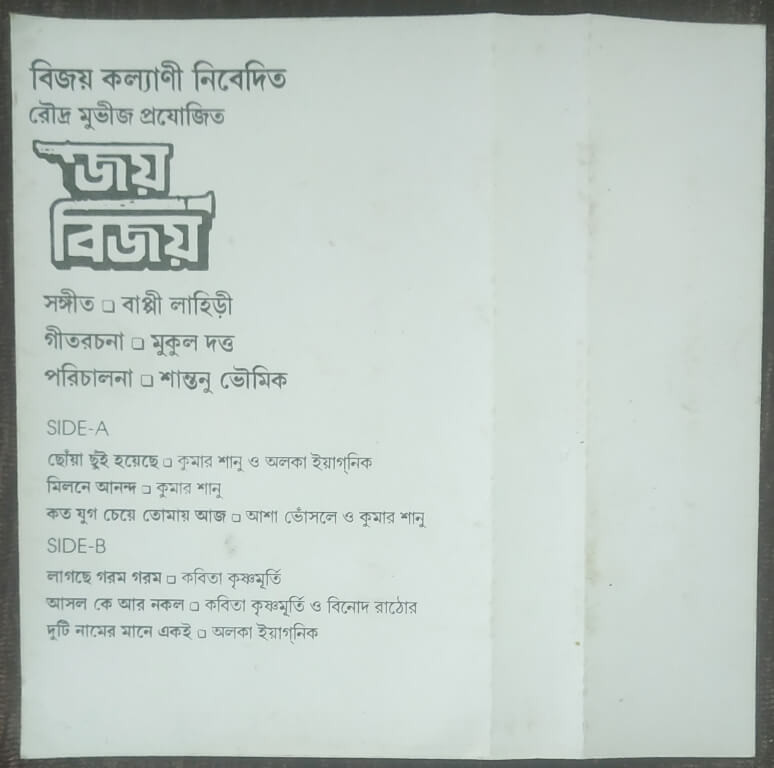 বিজয় কল্যাণী নিবেদিত
রৌদ্র মুভীজ প্রযোজিত
জয়
বিজয়
সঙ্গীত □ বাপ্পী লাহিড়ী
গীতরচনা □ মুকুল দত্ত
পরিচালনা □ শান্তনু ভৌমিক
SIDE-A
ছোঁয়া ছুঁই হয়েছে □ কুমার শানু ও অলকা ইয়াগ্‌নিক
মিলনে আনন্দ □ কুমার শানু
কত যুগ চেয়ে তোমায় আজ □ আশা ভোঁসলে ও কুমার শানু
SIDE-B
লাগছে গরম গরম □ কবিতা কৃষ্ণমূর্তি
আসল কে আর নকল □ কবিতা কৃষ্ণমূর্তি ও বিনোদ রাঠোর
দুটি নামের মানে একই □ অলকা ইয়াগ্‌নিক